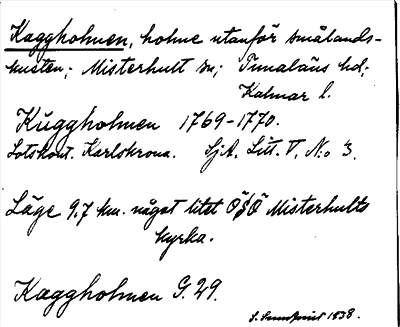 Kaggholmen, holme utanför smålands-
kusten; Misterhult sn; Tunaläns hd;
Kalmar l.
Kuggholmen 1769-1770.
Lotskont. Karlskrona. SjA. Litt. V. No 3.
Läge 9.7 km. något litet ÖSÖ Misterhults
kyrka.
Kaggholmen G. 29.
1938.